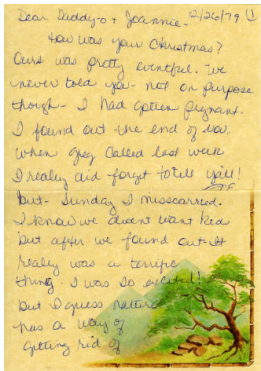 Dear Daddy-o + Joannie-   12/26/79 (1
How was your Christmas?
Ours was pretty eventful. We
never told you- not on purpose
though- I had gotten pregnant.
I found out the end of Nov.
When Greg called last week
I really did forget to tell ya'll!
But- Sunday I misscarried.
I know we didn't want kids
but after we found out- It
really was a terrific
thing. I was so excited!
But I guess nature
has a way of
getting rid of